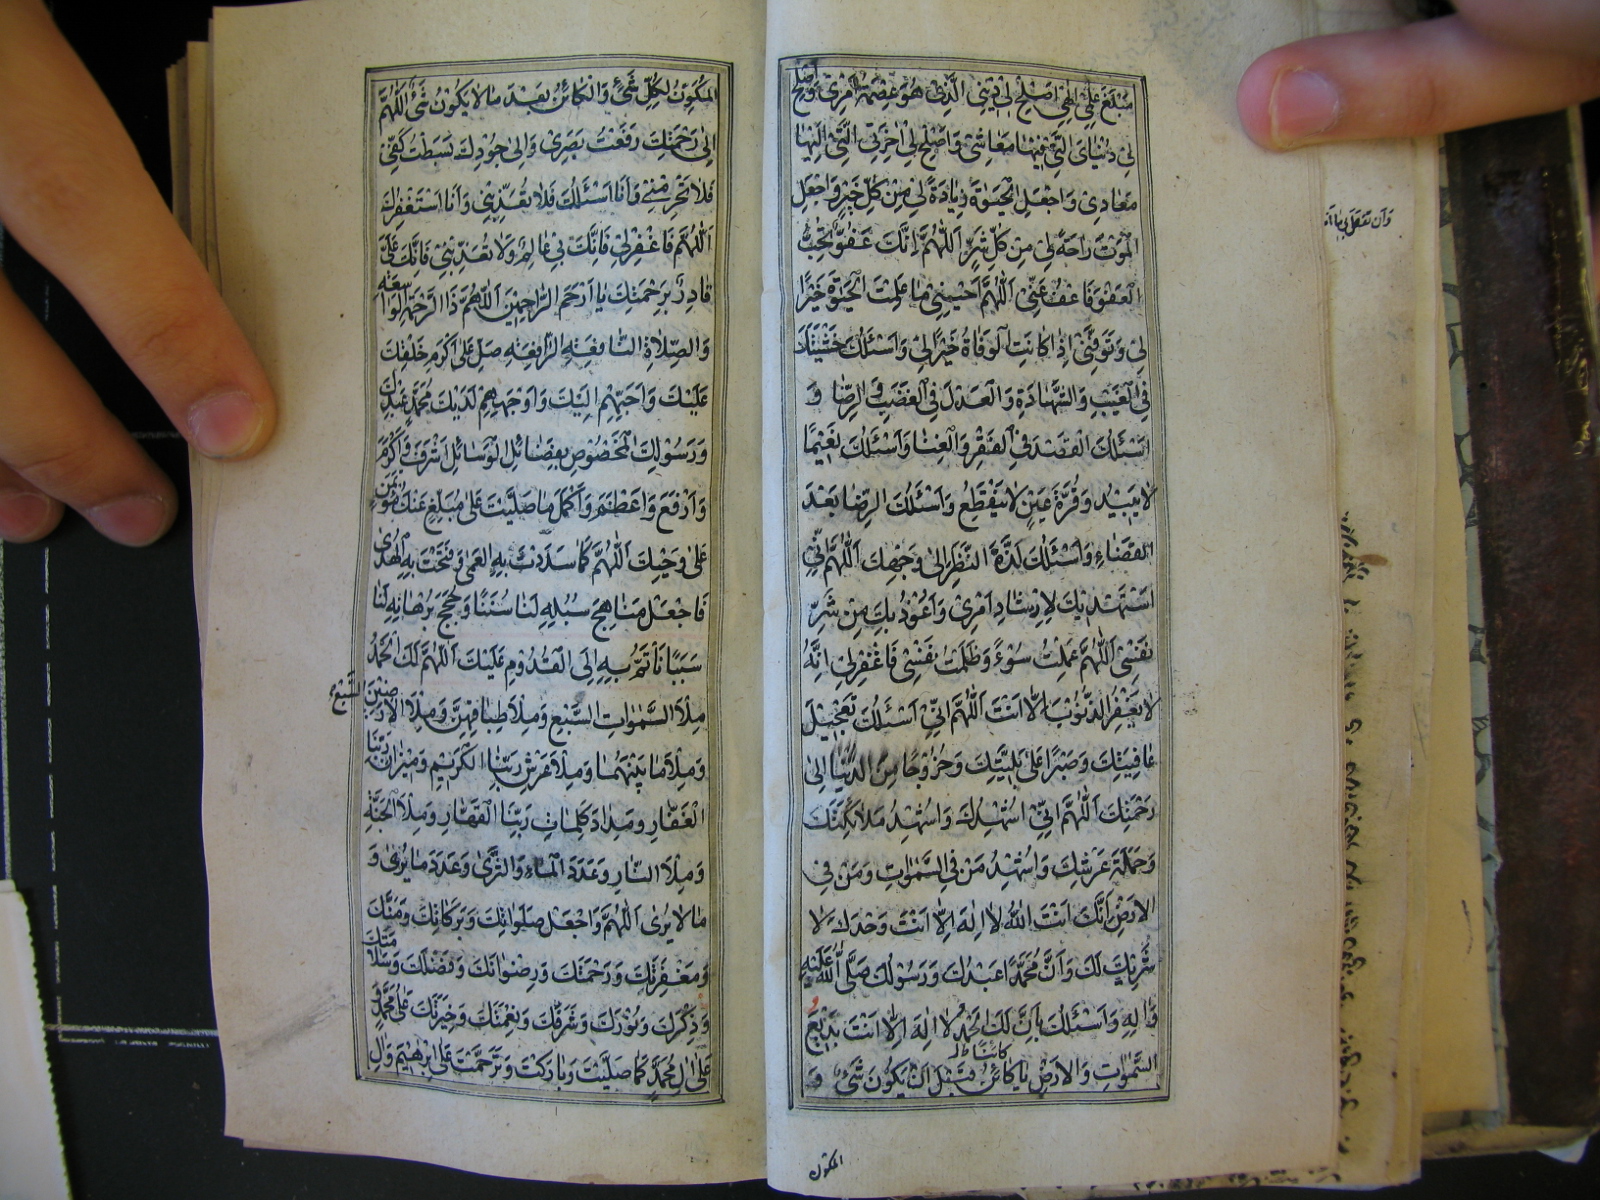 مَبْلَغَ عِلْمِي اِلٰهِي اَصْلِحْ لِي دِينِيَ الَّذِي هُوَ عِصْمَةُ اَمْرِي وَاَصْلِحْ
لِي دُنْيَايَ الَّتِي فِيهَا مَعَاشِي وَاَصْلِحْ لِي اٰخِرَتِي الَّتِي اِلَيْهَا
مَعَادِي وَاجْعَلِ الْحَيٰوةَ زِيَادَةً لِي مِنْ كُلِّ خَيْرٍ وَاجْعَلِ
الْمَوْتَ رَاحَةً لِي مِنْ كُلِّ شَرٍّ اَللّٰهُمَّ اِنَّكَ عَفُوٌّ تُحِبُّ
الْعَفْوَ فَاعْفُ عَنِّي اَللّٰهُمَّ اَحْيِنِي مَا عَلِمْتَ الْحَيٰوةَ خَيْرًا
لِي وَتَوَفَّنِي اِذَا كَانَتِ الْوَفَاةُ خَيْرًا لِي وَاَسْئَلُكَ خَشْيَتَكَ
فِي الْغَيْبِ وَالشَّهَادَةِ وَالْعَدْلَ فِي الْغَضَبِ وَالرِّضَا وَ
اَسْئَلُكَ الْقَصْدَ فِي الْفَقْرِ وَالْغِنَا وَاَسْئَلُكَ نَعِيمًا
لَا يَبِيدُ وَقُرَّةَ عَيْنٍ لَا يَنْقَطِعُ وَاَسْئَلُكَ الرِّضَا بَعْدَ
الْقَضَاءِ وَاَسْئَلُكَ لَذَّةَ النَّظَرِ اِلٰى وَجْهِكَ اَللّٰهُمَّ اِنِّي
اَسْتَهْدِيكَ لِاِرْشَادِ اَمْرِي وَاَعُوذُ بِكَ مِنْ شَرِّ
نَفْسِي اَللّٰهُمَّ عَمِلْتُ سُوْءً وَظَلَمْتُ نَفْسِي فَاغْفِرْ لِي اِنَّهُ
لَا يَغْفِرُ الذُّنُوبَ اِلَّا اَنْتَ اَللّٰهُمَّ اِنِّي اَسْئَلُكَ تَعْجِيلَ
عَافِيَتِكَ وَصَبْرًا عَلٰى بَلِيَّتِكَ وَخُرُوجًا مِنَ الدُّنْيَا اِلٰى
رَحْمَتِكَ اَللّٰهُمَّ اِنِّي اُشْهِدُكَ وَاُشْهِدُ مَلَائِكَتَكَ
وَحَمَلَةَ عَرْشِكَ وَاُشْهِدُ مَنْ فِي السَّمٰوَاتِ وَمَنْ فِي
الْاَرْضِ اِنَّكَ اَنْتَ اللّٰهُ لَا اِلٰهَ اِلَّا اَنْتَ وَحْدَكَ لَا
شَرِيكَ لَكَ وَاَنَّ مُحَمَّدًا عَبْدُكَ وَرَسُولُكَ صَلَّى اللّٰهُ عَلَيْهِ
وَاٰلِهِ وَاَسْئَلُكَ بِاَنَّ لَكَ الْحَمْدُ لَا اِلٰهَ اِلَّا اَنْتَ بَدِيعُ
السَّمٰوَاتِ وَالْاَرْضِ يَا كَائِنُ قَبْلَ اَنْ يَكُونَ شَيْءٌ وَ
المكون
الْمُكَوِّنُ لِكُلِّ شَيْءٍ وَالْكَائِنُ بَعْدَ مَا لَا يَكُونُ شَيْءٌ اَللّٰهُمَّ
اِلٰى رَحْمَتِكَ رَفَعْتُ بَصَرِي وَاِلٰى جُودِكَ بَسَطْتُ كَفِّي
فَلَا تَحْرِمْنِي وَاَنَا اَسْئَلُكَ فَلَا تُعَذِّبْنِي وَاَنَا اَسْتَغْفِرُكَ
اَللّٰهُمَّ فَاغْفِرْ لِي فَاِنَّكَ بِي عَالِمٌ وَلَا تُعَذِّبْنِي فَاِنَّكَ عَلَيَّ
قَادِرٌ بِرَحْمَتِكَ يَا اَرْحَمَ الرَّاحِمِينَ اَللّٰهُمَّ ذَا الرَّحْمَةِ الْوَاسِعَةِ
وَالصَّلَاةِ النَّافِعَةِ الرَّافِعَةِ صَلِّ عَلٰى اَكْرَمِ خَلْقِكَ
عَلَيْكَ وَاَحَبِّهِمْ اِلَيْكَ وَاَوْجَهِهِمْ لَدَيْكَ مُحَمَّدٍ عَبْدِكَ
وَرَسُولِكَ الْمَخْصُوصِ بِفَضَائِلِ الْوَسَائِلِ اَشْرَفَ وَاَكْرَمَ
وَاَرْفَعَ وَاَعْظَمَ وَاَكْمَلَ مَا صَلَّيْتَ عَلٰى مُبَلِّغٍ عَنْكَ مُؤْتَمَنٍ
عَلٰى وَحْيِكَ اَللّٰهُمَّ كَمَا سَدَدْتَ بِهِ الْعَمٰى وَفَتَحْتَ بِهِ الْهُدٰى
فَاجْعَلْ مَنَاهِجَ سُبُلِهِ لَنَا سُنَنًا وَحُجَجَ بُرْهَانِهِ لَنَا
سَبَبًا نَأْتَمُّ بِهِ اِلَى الْقُدُومِ عَلَيْكَ اَللّٰهُمَّ لَكَ الْحَمْدُ
مِلْاَ السَّمٰوَاتِ السَّبْعِ وَمِلْاَ طِبَاقِهِنَّ وَمِلْاَ الْاَرَضِينَ السَّبْعِ
وَمِلْاَ مَا بَيْنَهُمَا وَمِلْاَ عَرْشِ رَبِّنَا الْكَرِيمِ وَمِيزَانِ رَبِّنَا
الْغَفَّارِ وَمِدَادَ كَلِمَاتِ رَبِّنَا الْقَهَّارِ وَمِلْاَ الْجَنَّةِ
وَمِلْاَ النَّارِ وَعَدَدَ الْمَاءِ وَالثَّرٰى وَعَدَدَ مَا يُرٰى وَ
مَا لَا يُرٰى اَللّٰهُمَّ وَاجْعَلْ صَلَوَاتِكَ وَبَرَكَاتِكَ وَمَنَّكَ
وَمَغْفِرَتَكَ وَرَحْمَتَكَ وَرِضْوَانَكَ وَفَضْلَكَ وَسَلَامَتَكَ
وَذِكْرَكَ وَنُورَكَ وَشَرَفَكَ وَنِعْمَتَكَ وَخِيَرَتَكَ عَلٰى مُحَمَّدٍ
عَلٰى اٰلِ مُحَمَّدٍ كَمَا صَلَّيْتَ وَبَارَكْتَ وَتَرَحَّمْتَ عَلٰى اِبْرٰهِيمَ وَاٰلِ